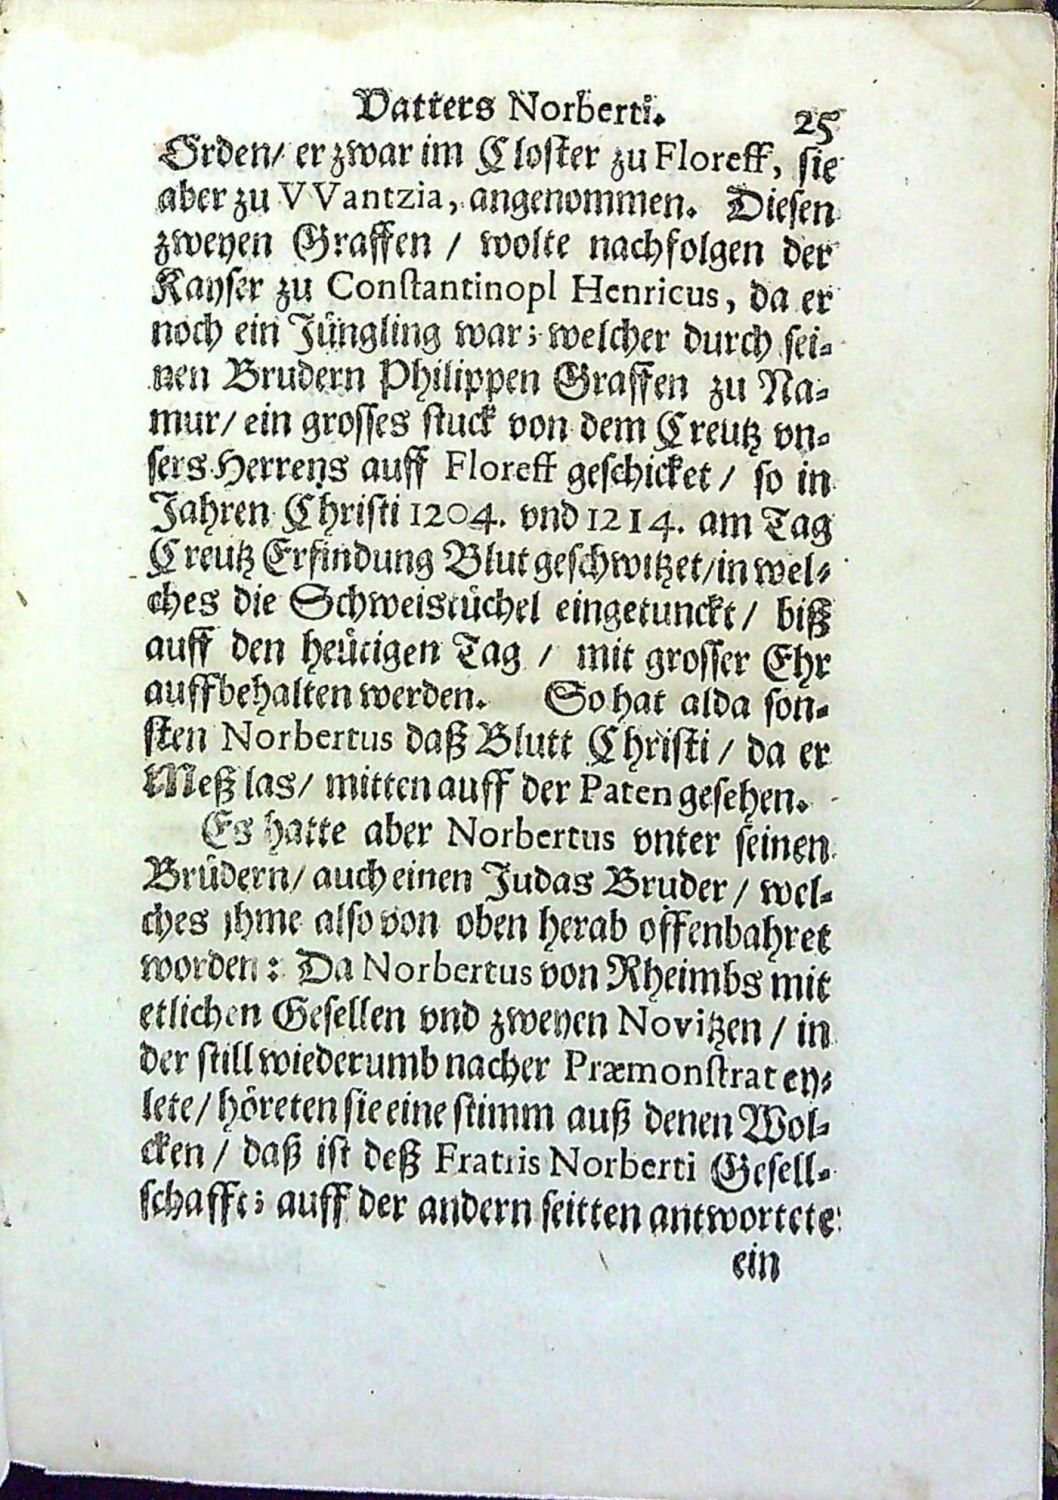 Vatters Norberti. 25
Orden/ er zwar im Closter zu Floreff, sie
aber zu VVantzia, angenommen. Diesen
zweyen Graffen / wolte nachfolgen der
Kayser zu Constantinopl Henricus, da er
noch ein Jüngling war; welcher durch sei-
nen Brudern Philippen Graffen zu Na-
mur/ ein grosses stuck von dem Creutz vn-
sers Herrens auff Floreff geschicket / so in
Jahren Christi 1204. vnd 1214. am Tag
Creutz Erfindung Blut geschwitzet/in wel-
ches die Schweistüchel eingetunckt / biß
auff den heütigen Tag / mit grosser Ehr
auffbehalten werden. So hat alda son-
sten Norbertus daß Blutt Christi / da er
Meß las/ mitten auff der Paten gesehen.
Es hatte aber Norbertus vnter seinen
Brüdern/ auch einen Judas Bruder / wel-
ches jhme also von oben herab offenbahret
worden: Da Norbertus von Rheimbs mit
etlichen Gesellen vnd zweyen Novitzen / in
der still wiederumb nacher Præmonstrat ey-
lete/ höreten sie eine stimm auß denen Wol-
cken / daß ist deß Fratris Norberti Gesell-
schafft; auff der andern seitten antwortete
ein